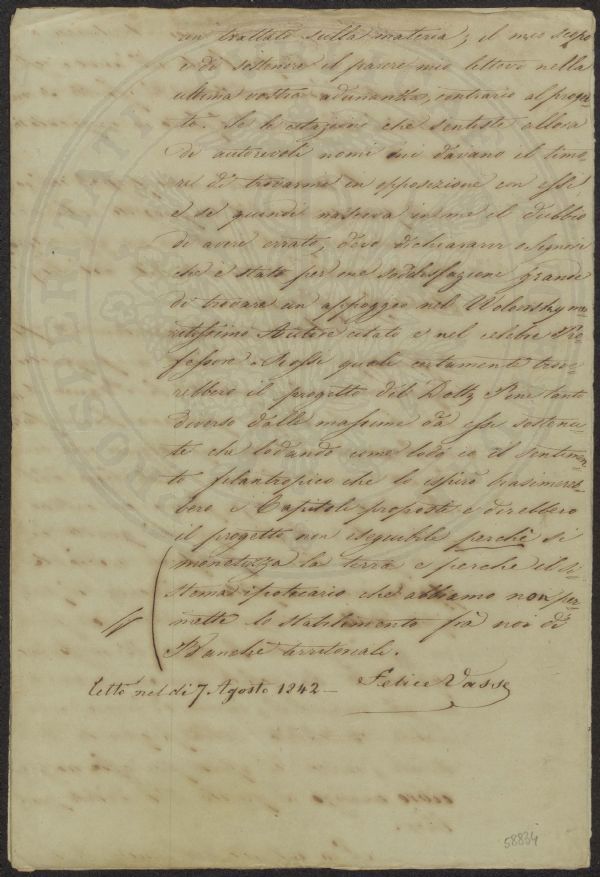 un trattato sulla materia; il mio scopo
è di sostenere il parere mio lettovi nella
ultima vostra adunanza, contrario al proget-
to. Se le citazioni che sentiste allora
di autorevoli nomi mi davano il timo-
re di trovarmi in opposizione con essi
e se quindi nasceva in me il dubbio
di avere errato, devo dichiararvi o Signori
che è stato per me soddisfazione grande
di trovare un appoggio nel Wolowsky me-
ritissimo Autore citato e nel celebre Pro-
fessore Rossi quali certamente trove-
rebbero il progetto del Dott. tanto
diverso dalle massime da essi sostenu-
te che lodando come lodo io il sentimen-
to filantropico che lo ispirò biasimereb-
bero i Capitoli proposti e direbbero
il progetto non eseguibile perchè si
monetizza la terra e perchè il Si-
stema ipotecario che abbiamo non per-
mette lo stabilimento frà noi di
Banche territoriali.
Letto nel dì 7 Agosto 1842 — Felice Vasse
58834